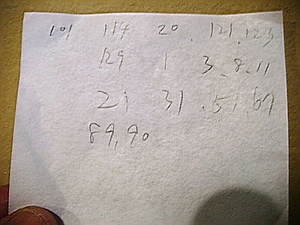 101 114 20, 121, 123
129 1 3, 8, 11
21 31, 51, 67
89, 90